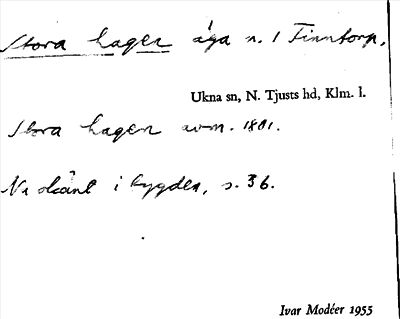 Stora hagen äga n. 1 Finntorp.
Ukna sn, N. Tjusts hd, Klm. l.
Stora hagen avm. 1801.
i bygden, s. 36.
Ivar Modéer 1955